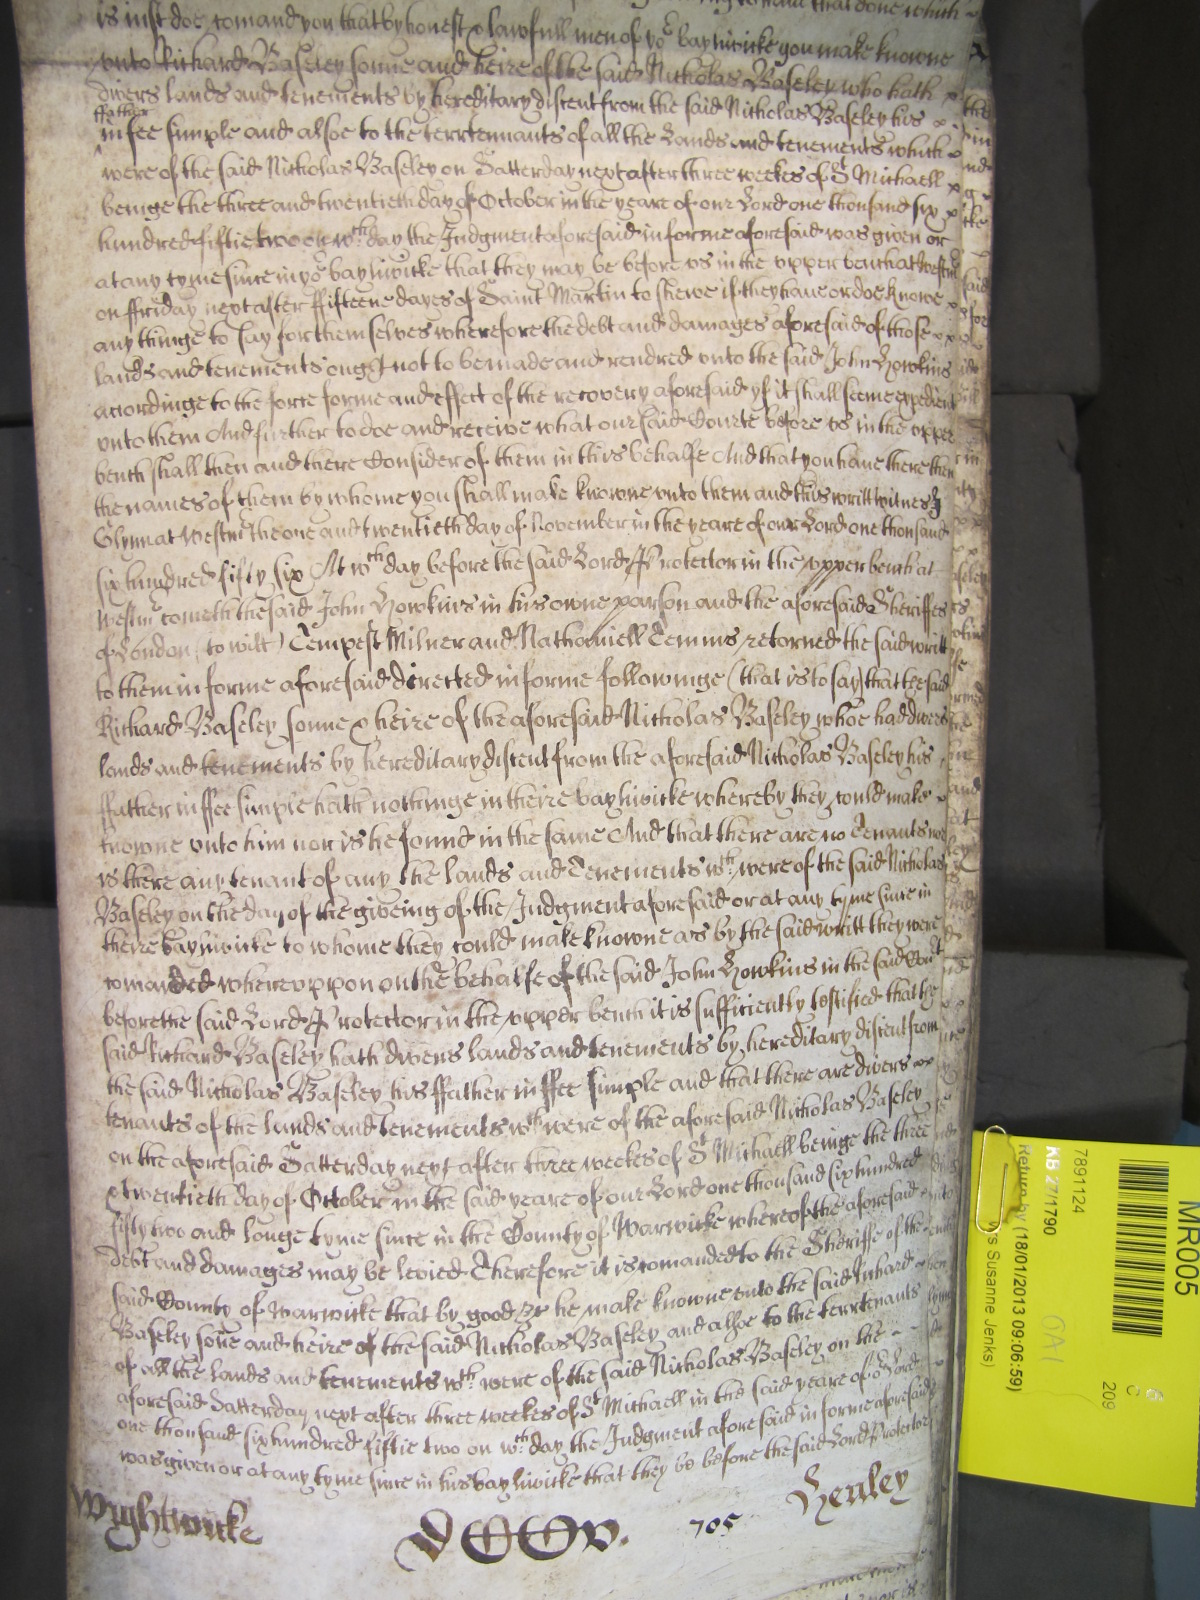 that done which
is iust doe comand you that by honest & lawfull men of yor baylwicke you make knowne
vnto Richard Baseley sonne and heire of the said Nicholas Baseley who hath
divers lands and tenements by hereditary discent from the said Nicholas Baseley his
ffather
in fee simple and alsoe to the terrtennants of all the Lands and tenements which
were of the said Nicholas Baseley on Satterday next after three weekes of St Michaell
beinge the three and twentieth day of October in the yeare of our Lord one thousand six
hundred fiftie two on wch day the Judgment aforesaid in forme aforesaid was given or
at any tyme since in yor baylwicke that they may be before vs in the vpper bench at Westmr
on ffriday next after ffifteene dayes of Saint Martin to shewe if they haue or doe knowe
any thinge to say for themselves wherefore the debt and damages aforesaid of those
lands and tenements ought not to be made and rendred vnto the said John Howkins
accordinge to the force forme and effect of the recovery aforesaid yf it shall seeme expedient
vnto them And further to doe and receive what our said Courte before vs in the vpper
bench shall then and there Consider of them in this behalfe And that you haue there then
the names of them by whome you shall make knowne vnto them and this writt witnes J
Glynn at Westmr the one and twentieth day of November in the yeare of our Lord one thousand
six hundred fifty six At wch day before the said Lord Protector in the vpper bench at
Westmr cometh the said John Howkins in his owne parson and the aforesaid Sheriffes
of London (to witt) Tempest Milner and Nathaniell Temms retorned the said writt
to them in forme aforesaid directed in forme followinge (that is to say) that the said
Richard Baseley sonne & heire of the aforesaid Nicholas Baseley whoe had divers
lands and tenements by hereditary discent from the aforesaid Nicholas Baseley his
ffather in ffee simple hath nothinge in theire baylwicke whereby they could make
knowne vnto him nor is he found in the same And that there are no Tenants
is there any tenant of any the lands and Tenements wch were of the said Nicholas
Baseley on the day of the giveing of the Judgment aforesaid or at any tyme since in
theire baylwicke to whome they could make knowne as by the said writt they were
comanded wherevppon on the behalfe of the said John Howkins in the said Court
before the said Lord Protector in the vpper bench it is sufficiently testified that the
said Richard Baseley hath divers lands and tenements by hereditary discent from
the said Nicholas Baseley his ffather in ffee simple and that there are divers
tenants of the lands and tenements wch were of the aforesaid Nicholas Baseley
on the aforesaid Satterday next after three weekes of St Michaell beinge the three
& twentieth day of October in the said yeare of our Lord one thousand six hundred
fifty two and longe tyme since in the County of Warwicke whereof the aforesaid
debt and damages may be levied Therefore it is comanded to the Sheriffe of the
said County of Warwicke that by good &c he make knowne vnto the said Richard
Baseley sone and heire of the said Nicholas Baseley and alsoe to the terrtenants
of all the lands and tenements wch were of the said Nicholas Baseley on the
aforesaid Satterday next after three weekes of St Michaell in the said yeare of or Lord
one thousand six hundred fiftie two on wch day the Judgment aforesaid in forme aforesaid
was given or at any tyme since in his baylwicke that they be before the said Lord Protector
Wightwicke
705
Henley
MR005
7891124
KB 27/1790
Return by (18/01/2013 09:06:59)
Ms Susanne Jenks)
OA1
C
209